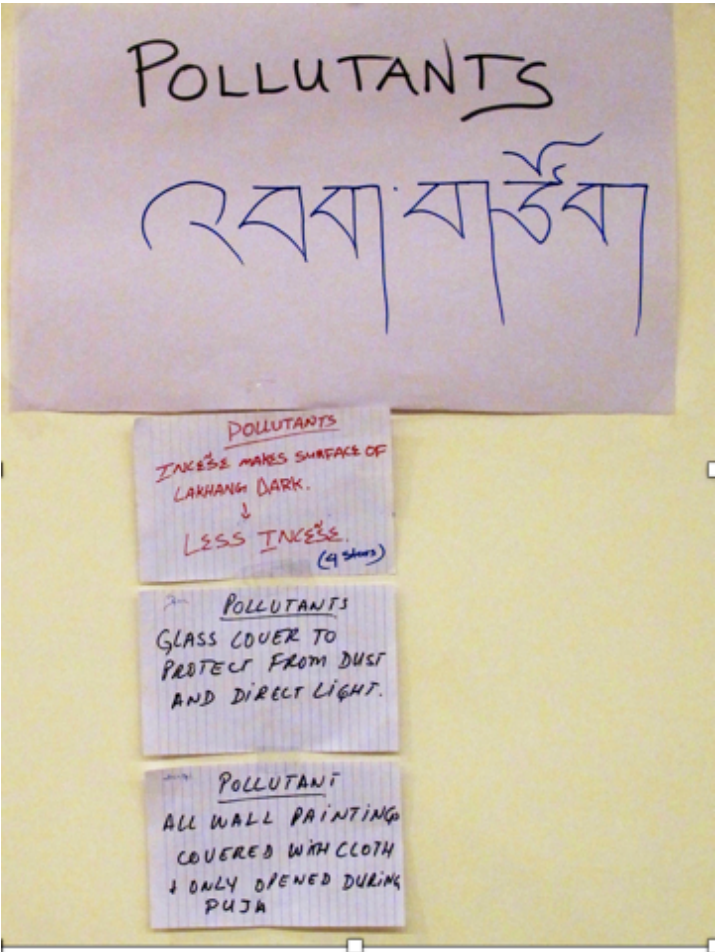 POLLUTANTS
འབག་གཙོག
POLLUTANTS
INCENSE MAKES SURFACE OF
LAKHANG DARK.
↓
LESS INCENSE.
(4 stars)
POLLUTANTS
GLASS COVER TO
PROTECT FROM DUST
AND DIRECT LIGHT.
POLLUTANT
ALL WALL PAINTINGS
COVERED WITH CLOTH
+ ONLY OPENED DURING
PUJA